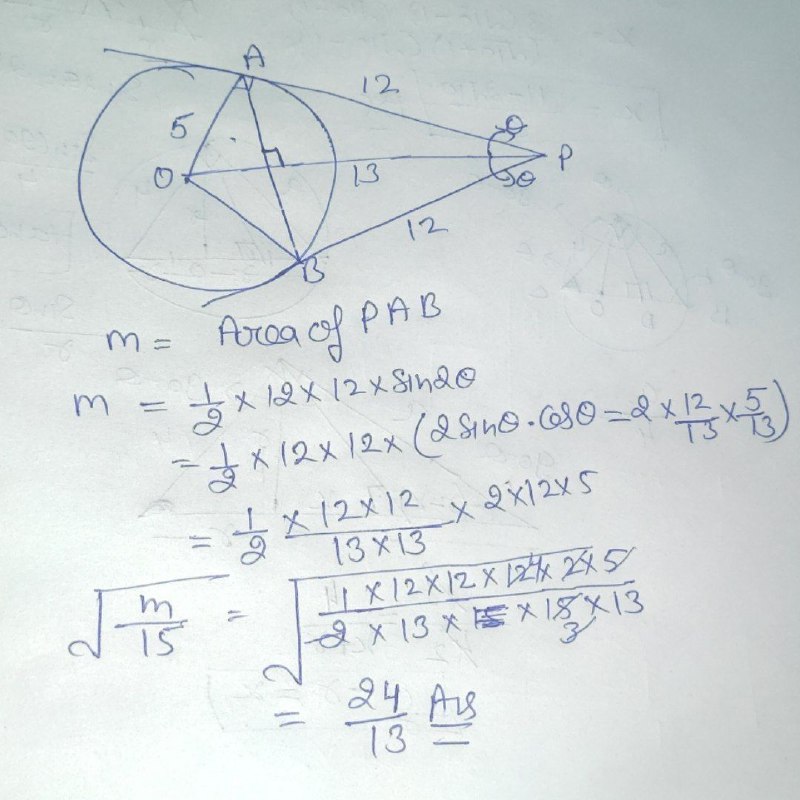 A
12
5
θ
O
13
P
θ
12
B
m = Area of PAB
m = 1/2 × 12 × 12 × sin2θ
= 1/2 × 12 × 12 × (2 sinθ · cosθ = 2 × 12/13 × 5/13)
= 1/2 × 12 × 12 / 13 × 13 × 2 × 12 × 5
√(m/15) = √(1 × 12 × 12 × 12 4 × 2 × 5 / 2 × 13 × 15 3 × 13)
= 24/13 Ans